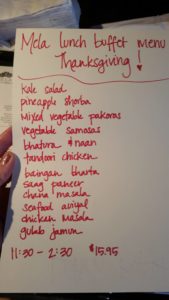 Mela lunch buffet menu
Thanksgiving ↓
kale salad
pineapple shorba
Mixed vegetable pakoras
vegetable samosas
bhatura & naan
tandoori chicken
baingan bharta
saag paneer
chana masala
seafood aviyal
chicken Masala
gulab jamun
11:30 - 2:30 $15.95